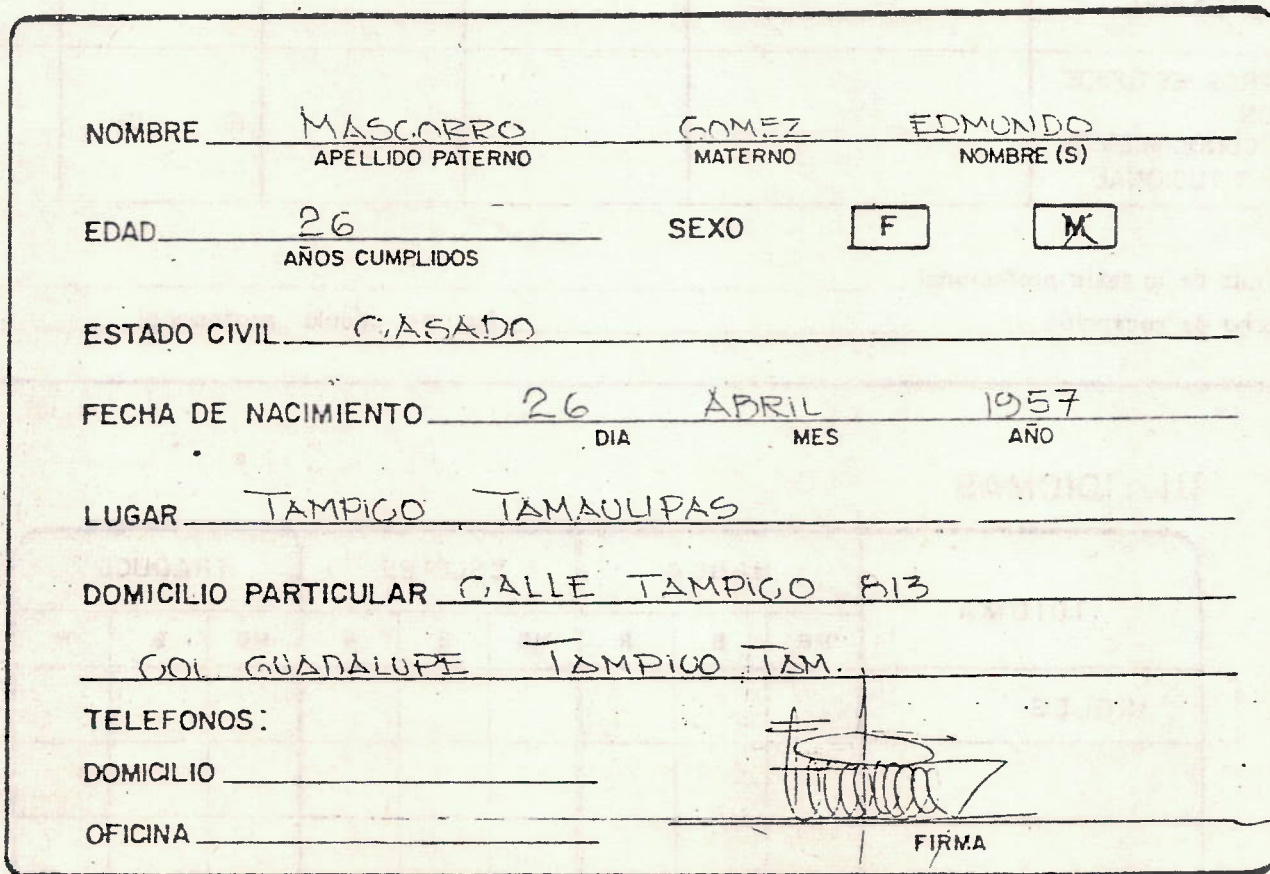 NOMBRE MASCORRO GOMEZ EDMUNDO
APELLIDO PATERNO MATERNO NOMBRE (S)
EDAD 26 SEXO F M
AÑOS CUMPLIDOS
ESTADO CIVIL CASADO
FECHA DE NACIMIENTO 26 ABRIL 1957
DIA MES AÑO
LUGAR TAMPICO TAMAULIPAS
DOMICILIO PARTICULAR CALLE TAMPICO 813
COL GUADALUPE TAMPICO TAM.
TELEFONOS:
DOMICILIO
OFICINA
FIRMA